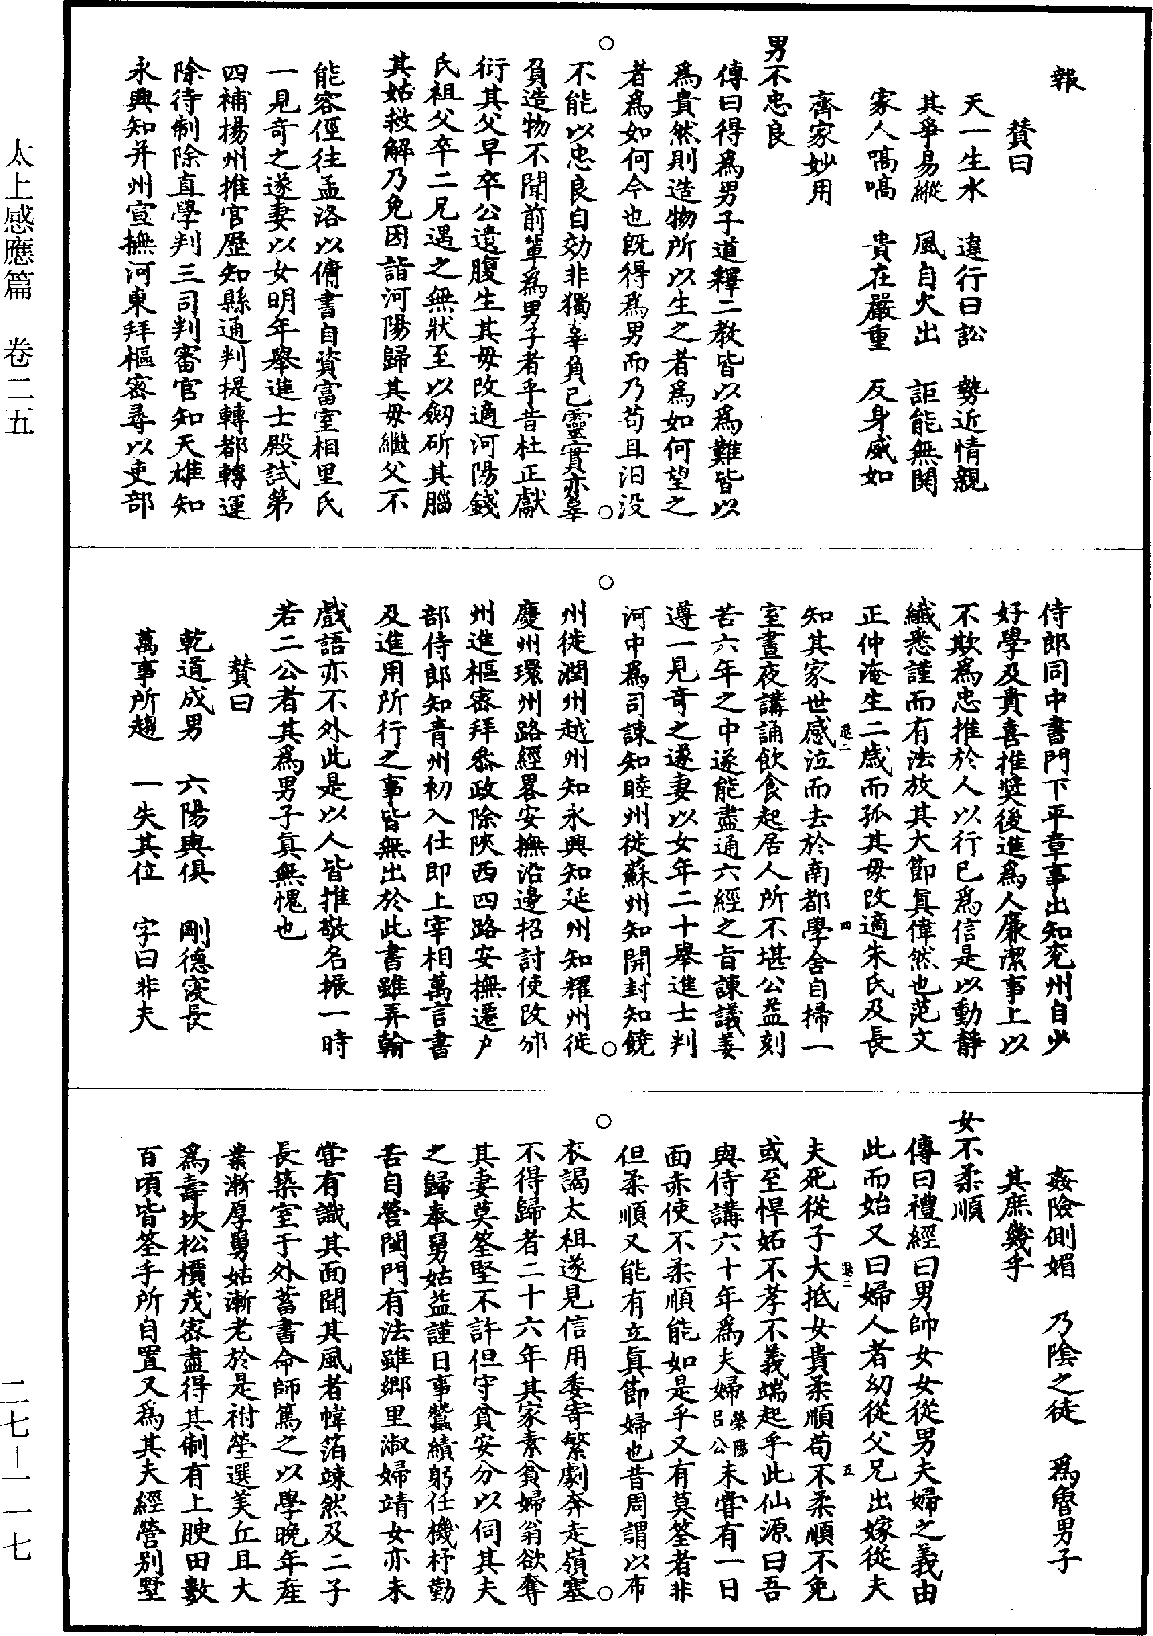 報
贊曰
天一生水　違行曰訟　勢近情親
其爭易縱　風自火出　詎能無閱
家人嗃嗃　貴在嚴重　反身威如
齊家妙用
男不忠良
傳曰得爲男子道釋二教皆以爲難皆以
爲貴然則造物所以生之者爲如何望之
者爲如何今也旣得爲男而乃苟且汩没
不能以忠良自効非獨辜負己靈實亦辜
負造物不聞前輩爲男子者乎昔杜正獻
衍其父早卒公遺腹生其母改適河陽錢
氏祖父卒二兄遇之無狀至以劒斫其腦
其姑救解乃免因詣河陽歸其母繼父不
能容俓往孟洛以傭書自資富室相里氏
一見奇之遂妻以女明年舉進士殿試第
四補揚州推官歷知縣通判提轉都轉運
除待制除直學判三司判審官知天雄知
永興知并州宣撫河東拜樞密尋以吏部
侍郎同中書門下平章事出知兖州自少
好學及貴喜推奬後進爲人廉潔事上以
不欺爲忠推於人以行已爲信是以動静
纎悉謹而有法放其大節眞偉然也范文
正仲淹生二歲而孤其母改適朱氏及長
知其家世感泣而去於南都學舍自掃一
室晝夜講誦飲食起居人所不堪公益刻
苦六年之中遂能盡通六經之旨諫議姜
遵一見奇之遂妻以女年二十舉進士判
河中爲司諫知睦州徙蘇州知開封知饒
州徙潤州越州知永興知延州知耀州徙
慶州環州路經畧安撫沿邊招討使改邠
州進樞密拜叅政除陝西四路安撫遷户
部侍郎知青州初入仕即上宰相萬言書
及進用所行之事皆無出於此書雖弄翰
戲語亦不外此是以人皆推敬名振一時
若二公者其爲男子眞無愧也
贊曰
乾道成男　六陽與俱　剛德寖長
萬事所趨　一失其位　字曰非夫
姦險側媚　乃陰之徒　爲魯男子
其庶幾乎
女不柔順
傳曰禮經曰男帥女女從男夫婦之義由
此而始又曰婦人者幼從父兄出嫁從夫
夫死從子大抵女貴柔順苟不柔順不免
或至悍妬不孝不義端起乎此仙源曰吾
與侍講六十年爲夫婦滎陽吕公未嘗有一日
面赤使不柔順能如是乎又有莫筌者非
但柔順又能有立眞節婦也昔周謂以布
衣謁太祖遂見信用委寄繁劇奔走嶺塞
不得歸者二十六年其家素貧婦翁欲奪
其妻莫筌堅不許但守貧安分以伺其夫
之歸奉舅姑益謹日事蠶績躬任機杼勤
苦自營閨門有法雖鄉里淑婦靖女亦未
嘗有識其面聞其風者幃箔竦然及二子
長築室于外蓄書命師篤之以學晚年産
業漸厚舅姑漸老於是祔塋選美丘且大
爲壽坎松檟茂密盡得其制有上腴田數
百頃皆筌手所自置又爲其夫經營别墅
太上感應篇　卷二五
二七－一一七